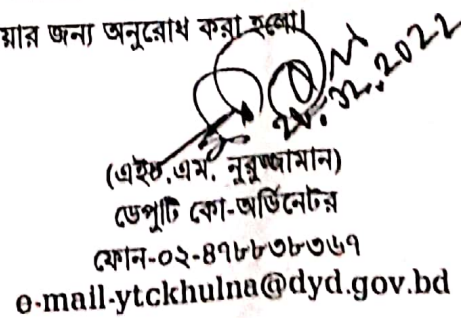 য়ার জন্য অনুরোধ করা হলো।
২৮.১২.২০২২
(এইচ.এম. নুরুজ্জামান)
ডেপুটি কো-অর্ডিনেটর
ফোন-০২-৪৭৮৮৩৮৩৬৭
e-mail-ytckhulna@dyd.gov.bd